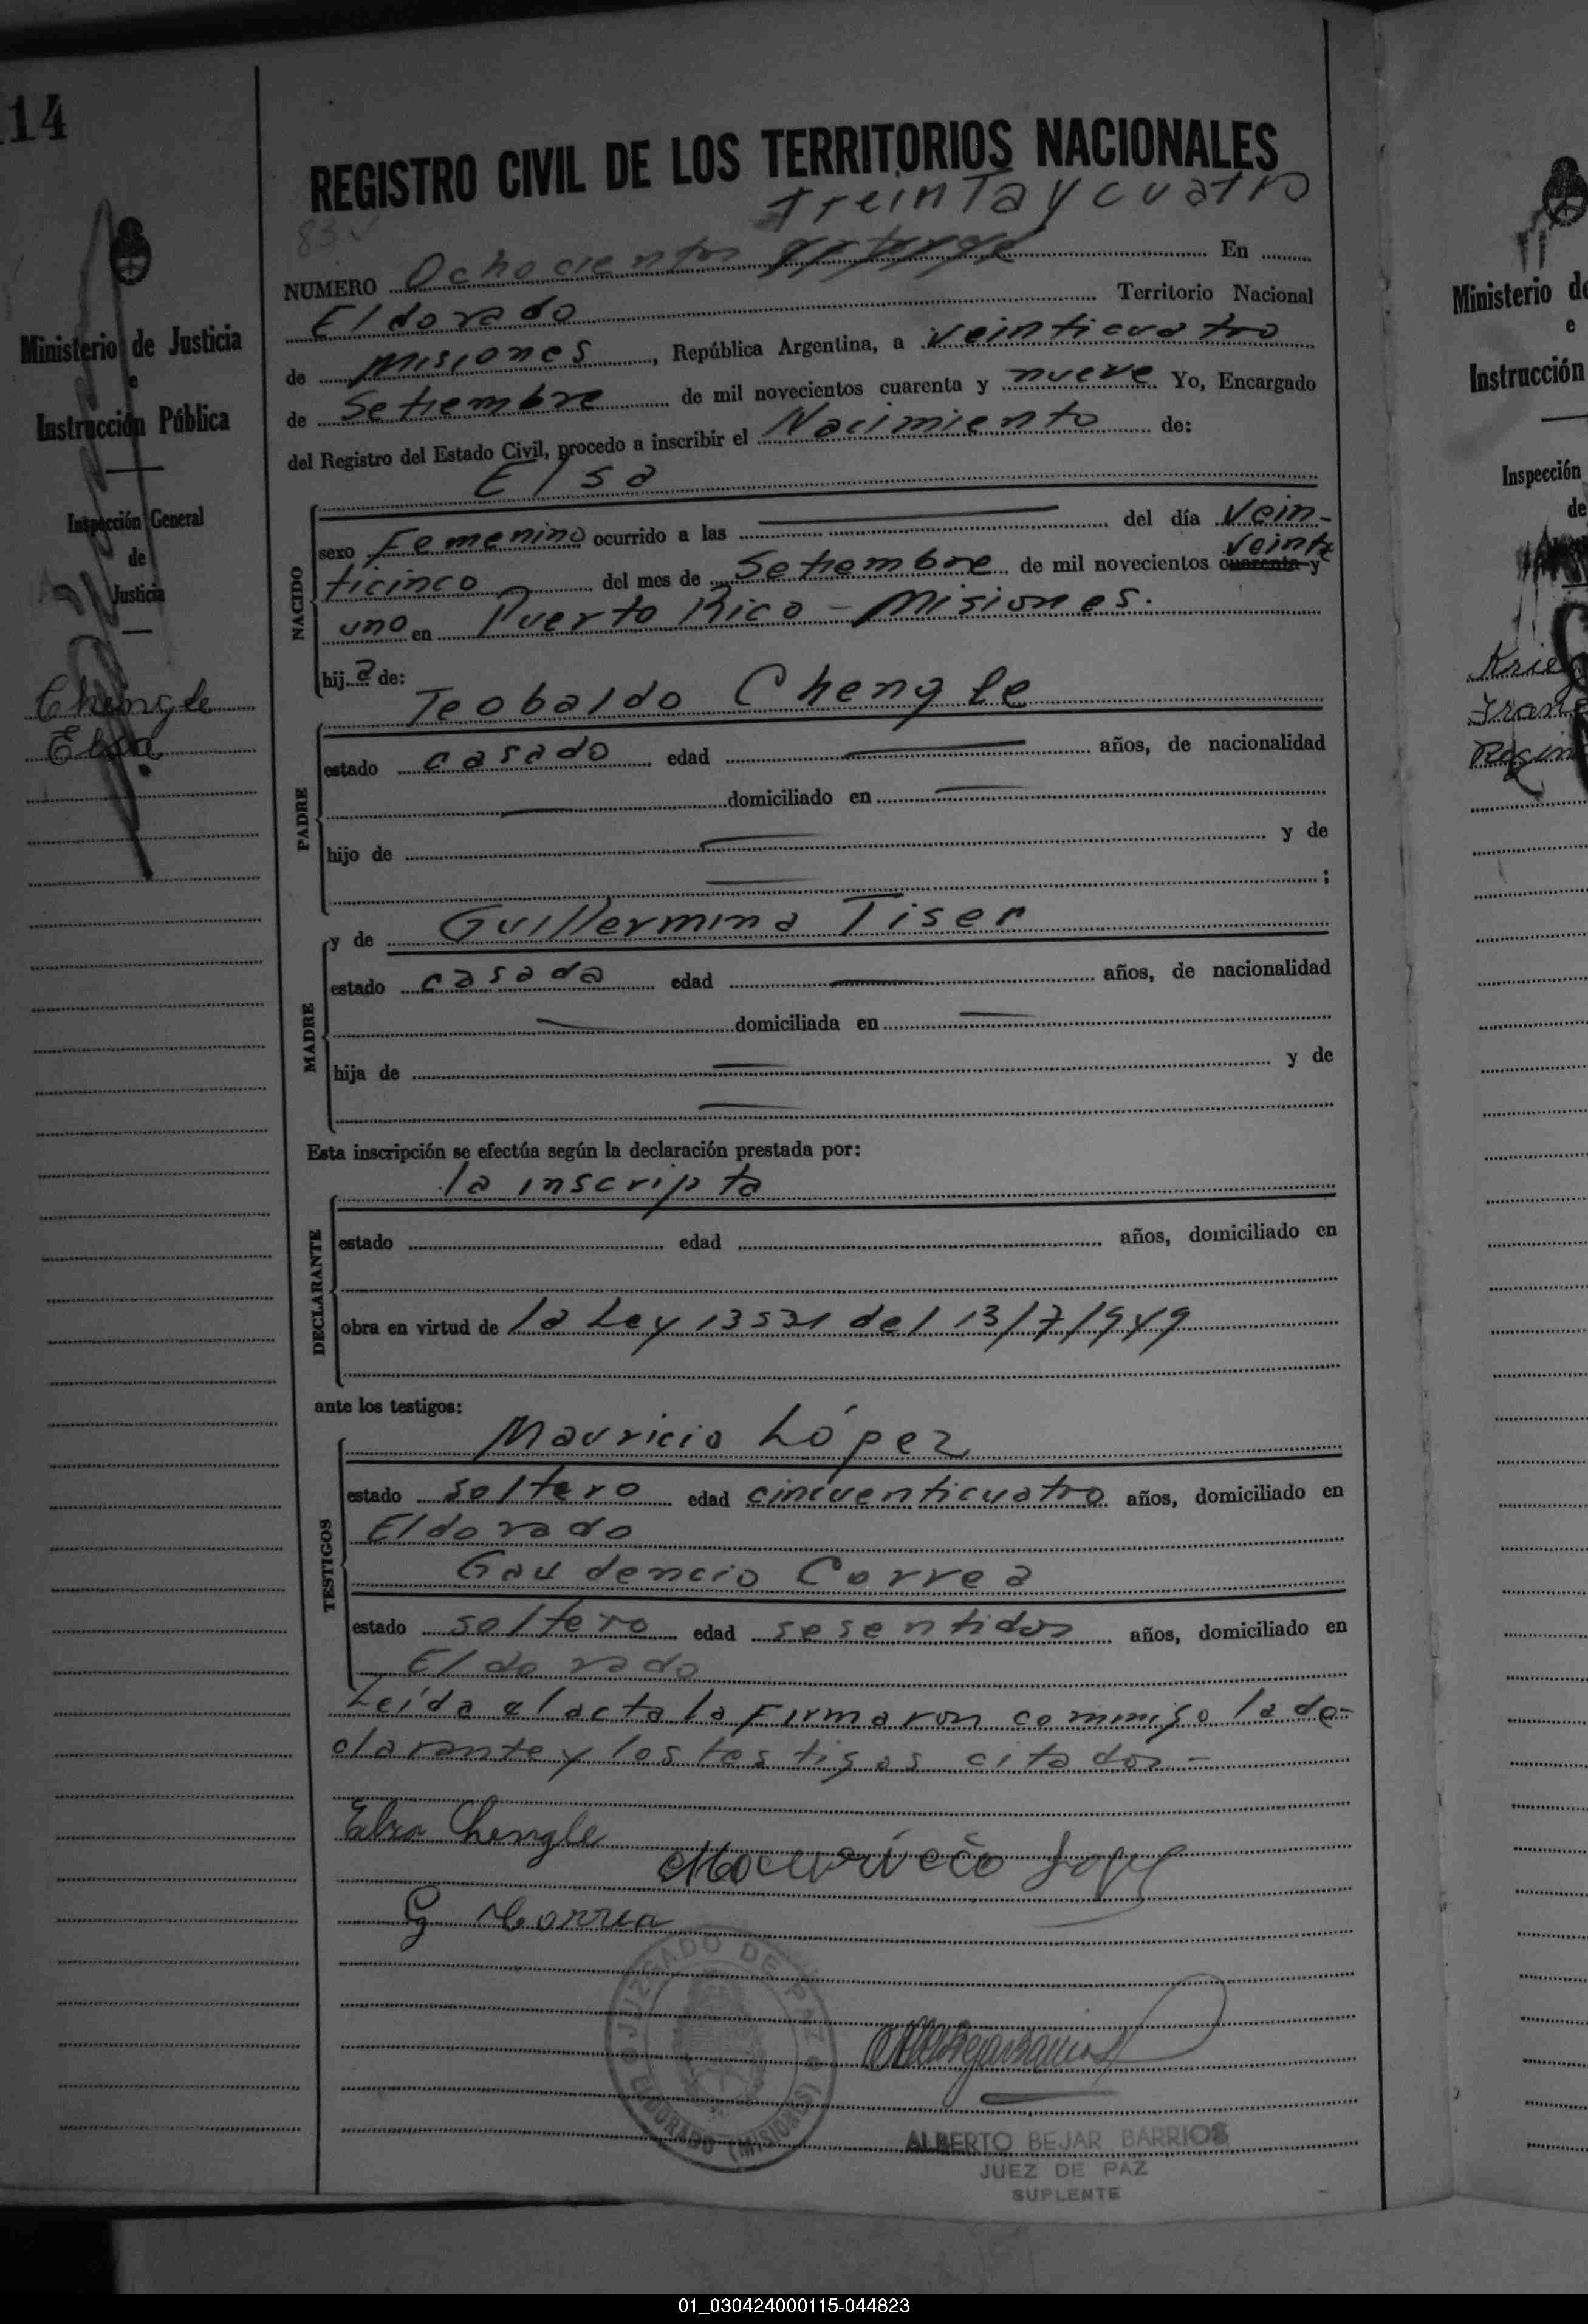 14
REGISTRO CIVIL DE LOS TERRITORIOS NACIONALES
treinta y cuatro
NUMERO Ochocientos En
Eldorado Territorio Nacional
de Misiones, República Argentina, a veinticuatro
de Setiembre de mil novecientos cuarenta y nueve Yo, Encargado
del Registro del Estado Civil, procedo a inscribir el Nacimiento de:
Elsa
NACIDO
sexo Femenino ocurrido a las del día vein-
veinti
ticinco del mes de Setiembre de mil novecientos cuarenta y
uno en Puerto Rico - Misiones.
hij a de:
Teobaldo Chengle
PADRE
estado casado edad años, de nacionalidad
domiciliado en
hijo de y de
;
y de Guillermina Tiser
MADRE
estado casada edad años, de nacionalidad
domiciliada en
hija de y de
Esta inscripción se efectúa según la declaración prestada por:
la inscripta
DECLARANTE
estado edad años, domiciliado en
obra en virtud de la Ley 13521 del 13/7/949
ante los testigos:
Mauricio López
TESTIGOS
estado soltero edad cincuenticuatro años, domiciliado en
Eldorado
Gaudencio Correa
estado soltero edad sesentidos años, domiciliado en
Eldorado
Leída el acta la firmaron conmigo la de-
clarante y los testigos citados -
Elsa Chengle
Mauricio Lopez
G Correa
JUZGADO DE PAZ
ELDORADO (MISIONES)
ALBERTO BEJAR BARRIOS
JUEZ DE PAZ
SUPLENTE
Ministerio de Justicia
e
Instrucción Pública
Inspección General
de
Justicia
Chengle
Elsa
Ministerio de
e
Instrucción
Inspección
de
01_030424000115-044823